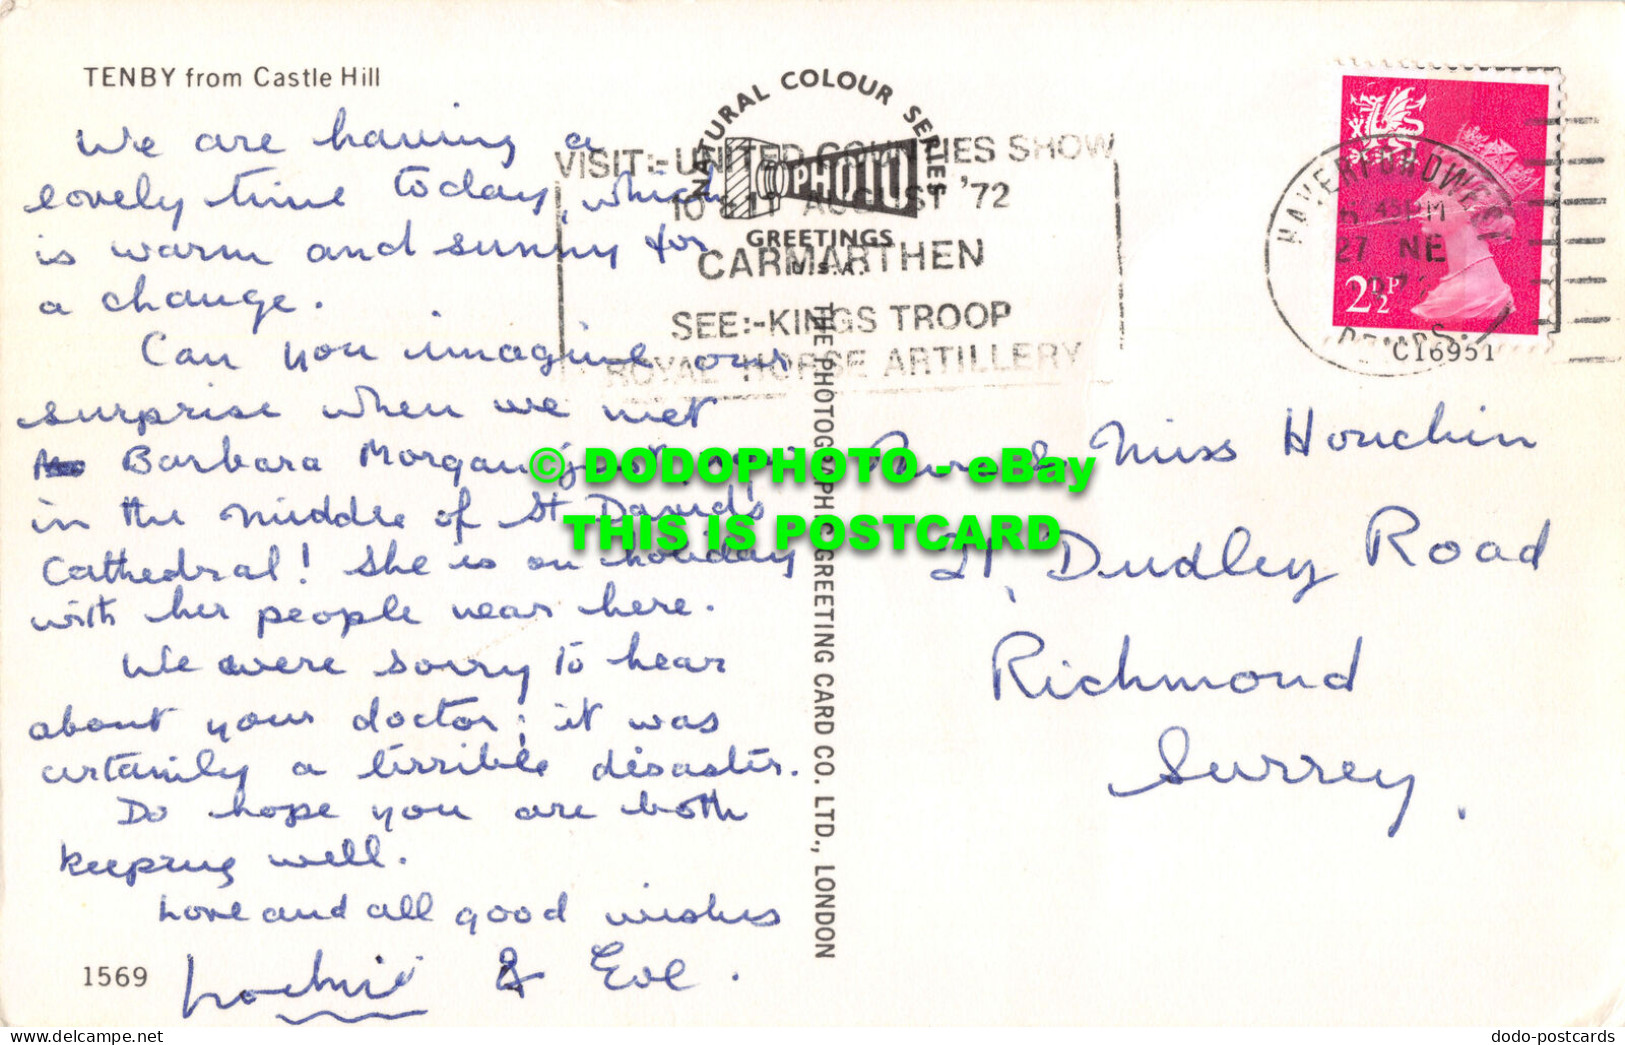 TENBY from Castle Hill
We are having a
lovely time today, which
is warm and sunny for
a change.
Can you imagine our
surprise when we met
Barbara Morgan just now
in the middle of St David's
Cathedral! She is on holiday
with her people near here.
We were sorry to hear
about your doctor; it was
certainly a terrible disaster.
Do hope you are both
keeping well.
Love and all good wishes
& Eve.
1569
NATURAL COLOUR SERIES
PHOTO
GREETINGS
VISIT:- UNITED COUNTIES SHOW
10 & 11 AUGUST '72
CARMARTHEN
SEE:- KINGS TROOP
ROYAL HORSE ARTILLERY
THE PHOTOGRAPHIC GREETING CARD CO. LTD., LONDON
HAVERFORDWEST
45 PM
27 NE
2½P
C16951
Mrs & Miss Houchin
21, Dudley Road
Richmond
Surrey.
© DODOPHOTO - eBay
THIS IS POSTCARD
dodo-postcards